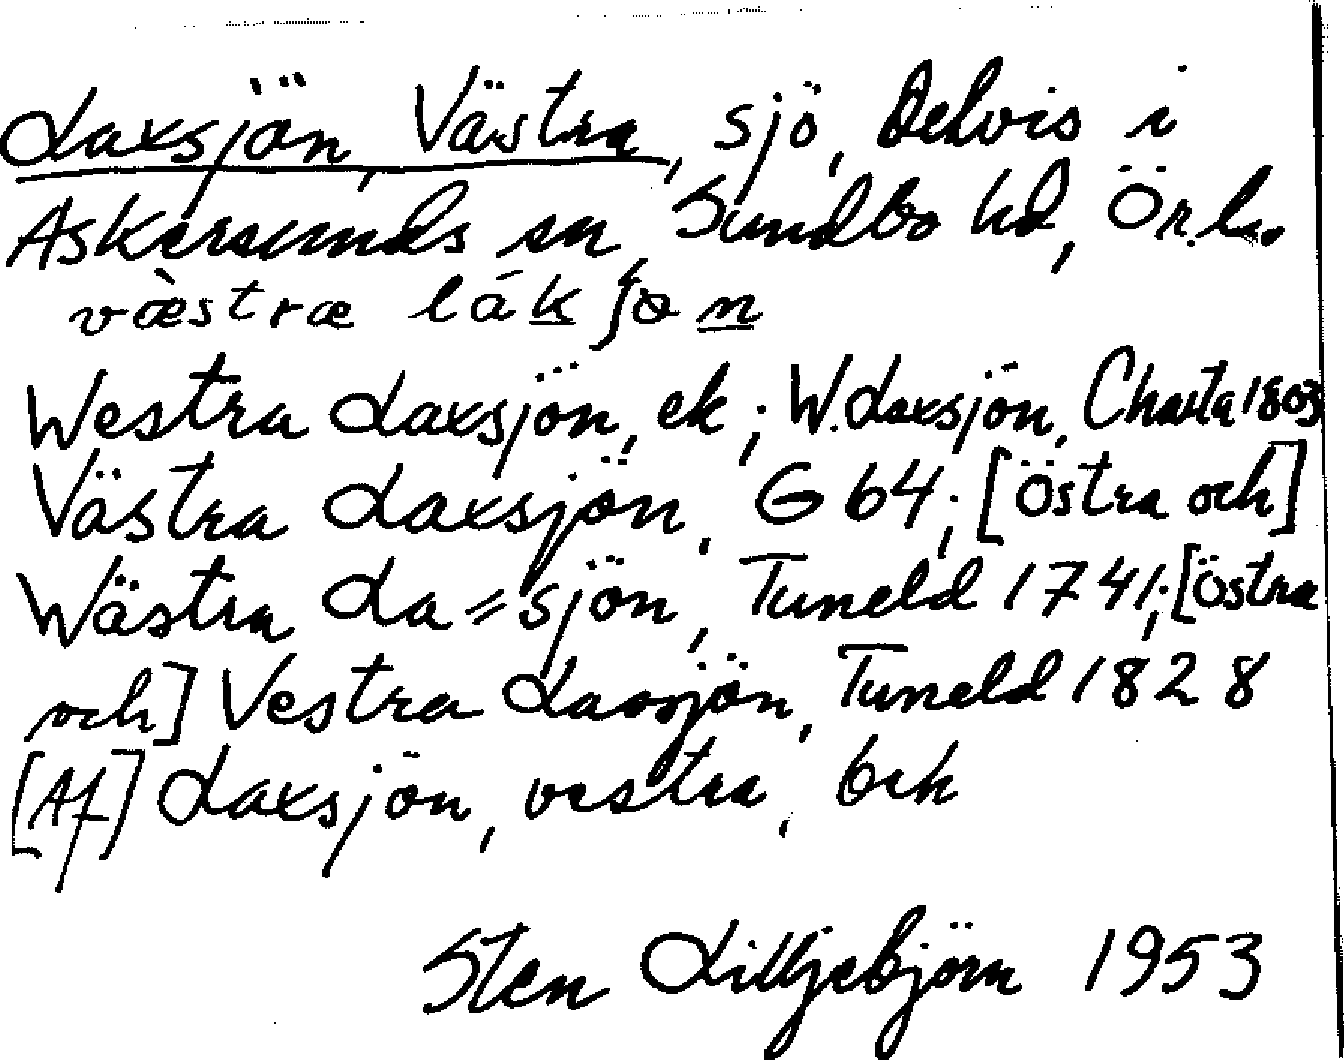 Laxsjön, Västra, sjö, Delvis i
Askersunds sn, Sundbo hd, Ör.l.
væ̀stræ lák ʃøn
Westra Laxsjön, ek; W. Laxsjön, Charta 1803
Västra Laxsjön, G 64; [Östra och]
Wästra La=sjön, Tuneld 1741; [Östra
och] Vestra Laxsjön, Tuneld 1828
[Af] Laxsjön, vestra, bek
Sten Lilljebjörn 1953